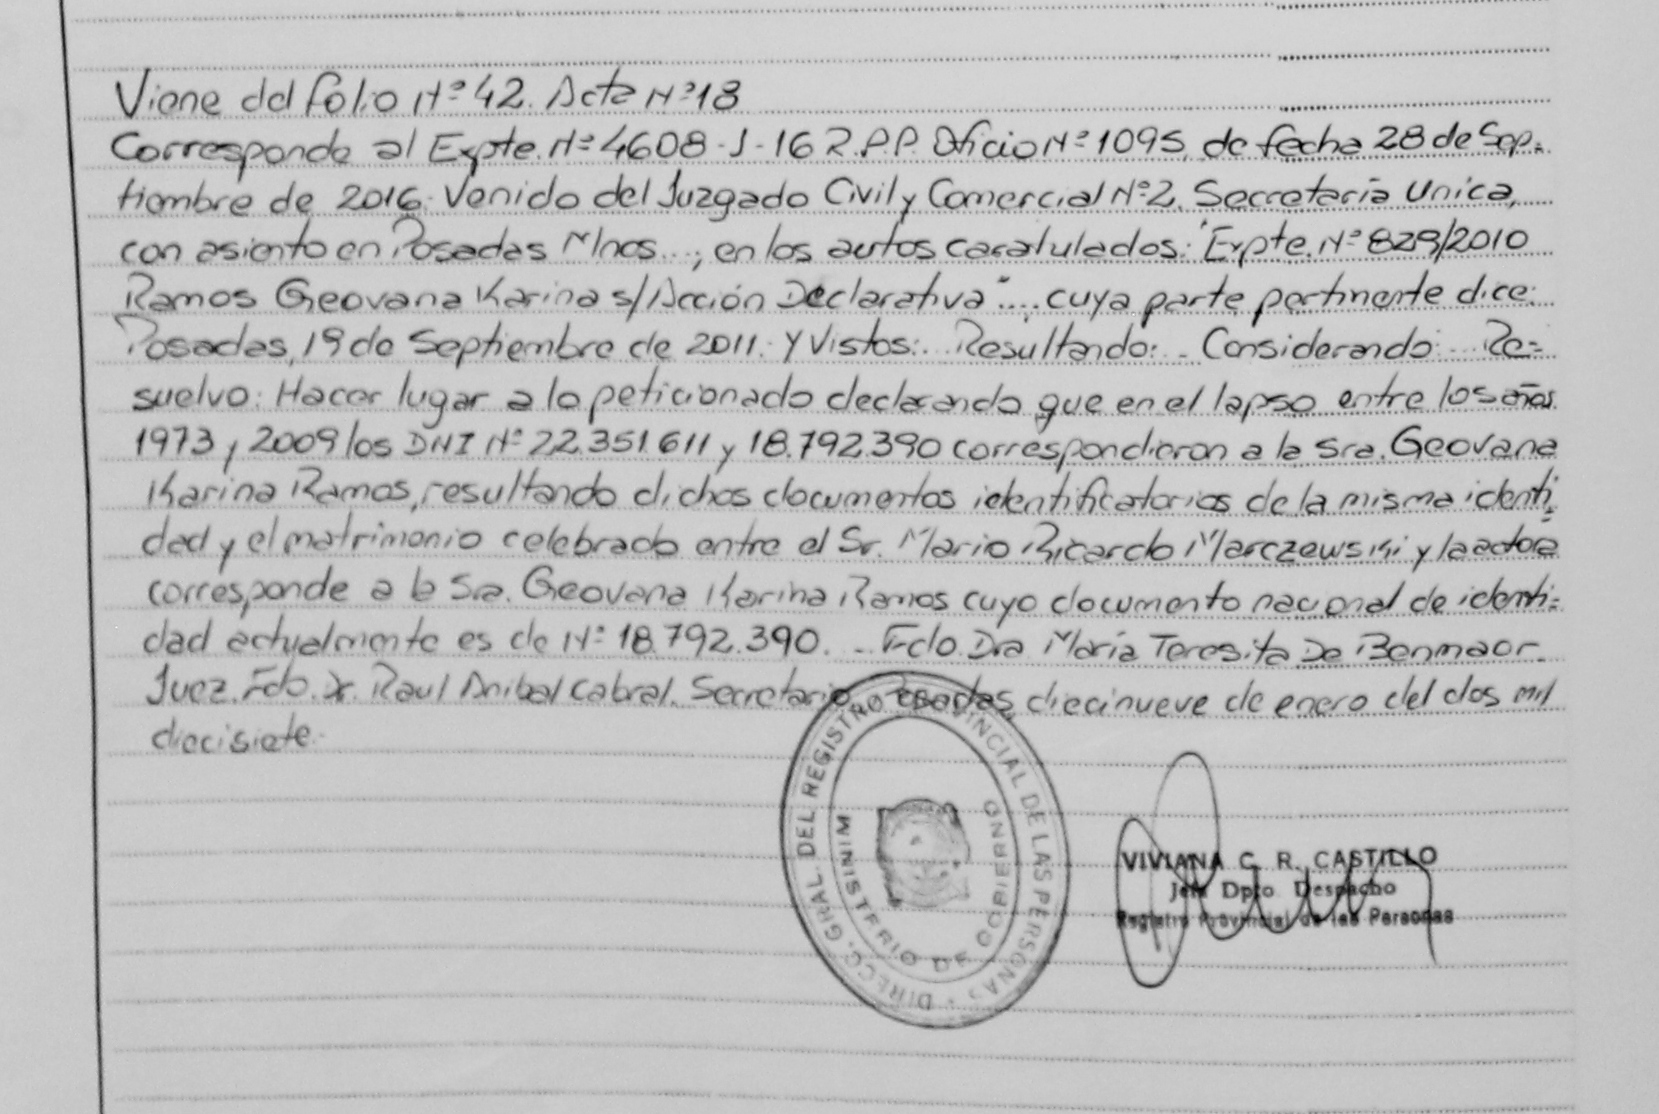 Viene del folio Nº 42. Acta Nº 18
Corresponde al Expte. Nº 4608-J-16 R.P.P. Oficio Nº 1095, de fecha 28 de Sep-
tiembre de 2016. Venido del Juzgado Civil y Comercial Nº 2, Secretaría Unica,
con asiento en Posadas Mnes..; en los autos caratulados: "Expte. Nº 829/2010
Ramos Geovana Karina s/Acción Declarativa".... cuya parte pertinente dice:
Posadas, 19 de Septiembre de 2011. Y Vistos:.. Resultando: .. Considerando: .. Re-
suelvo: Hacer lugar a lo peticionado declarando que en el lapso entre los años
1973 y 2009 los DNI Nº 22.351.611 y 18.792.390 correspondieron a la Sra. Geovana
Karina Ramos, resultando dichos documentos identificatorios de la misma identi-
dad y el matrimonio celebrado entre el Sr. Mario Ricardo Marczewski y la actora
corresponde a la Sra. Geovana Karina Ramos cuyo documento nacional de identi-
dad actualmente es de Nº 18.792.390. .. Fdo. Dra María Teresita De Benmaor.
Juez. Fdo. Dr. Raul Anibal Cabral. Secretario. Posadas, diecinueve de enero del dos mil
diecisiete.
DIRECC. GRAL. DEL REGISTRO PROVINCIAL DE LAS PERSONAS
MINISTERIO DE GOBIERNO
VIVIANA C. R. CASTILLO
Jefe Dpto. Despacho
Registro Provincial de las Personas